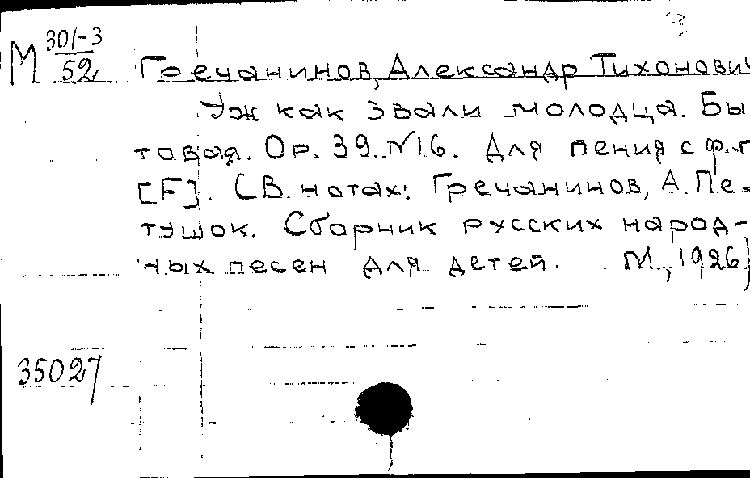 М 301-3/52
Гречанинов, Александр Тихонович
Уж как звали молодца. Бы
товая. Op. 39. №16. Для пения с ф.п
[F]. (В нотах: Гречанинов, А. Пе-
тушок. Сборник русских народ-
ных песен для детей. М., 1926)
35027